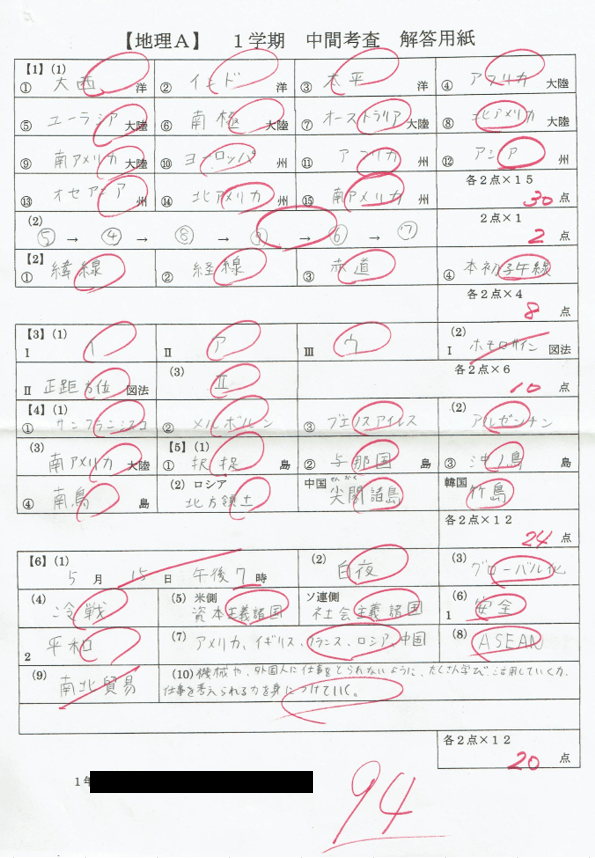 【地理A】 1学期 中間考査 解答用紙
【1】(1)
① 大西 洋 ② インド 洋 ③ 太平 洋 ④ アフリカ 大陸
⑤ ユーラシア 大陸 ⑥ 南極 大陸 ⑦ オーストラリア 大陸 ⑧ 北アメリカ 大陸
⑨ 南アメリカ 大陸 ⑩ ヨーロッパ 州 ⑪ アフリカ 州 ⑫ アジア 州
⑬ オセアニア 州 ⑭ 北アメリカ 州 ⑮ 南アメリカ 州 各2点×15 30 点
(2) 2点×1
⑤ → ④ → ⑧ → → ⑥ → ⑦ 2 点
【2】
① 緯線 ② 経線 ③ 赤道 ④ 本初子午線
各2点×4
8 点
【3】(1) (2)
Ⅰ イ Ⅱ ア Ⅲ ウ Ⅰ ホモロサイン 図法
(3) 各2点×6
Ⅱ 正距方位 図法 Ⅱ 10 点
【4】(1) (2)
① サンフランシスコ ② メルボルン ③ ブエノスアイレス アルゼンチン
(3) 【5】(1)
南アメリカ 大陸 ① 択捉 島 ② 与那国 島 ③ 沖ノ鳥 島
(2) ロシア 中国 韓国
④ 南鳥 島 北方領土 尖閣諸島 竹島
各2点×12
24 点
【6】(1) (2) (3)
5 月 15 日 午後7 時 白夜 グローバル化
(4) (5) 米側 ソ連側 (6)
冷戦 資本主義諸国 社会主義諸国 1 安全
(7) (8)
2 平和 アメリカ、イギリス、フランス、ロシア、中国 ASEAN
(9) (10) 機械や、外国人に仕事をとられないように、たくさん学び、活用していく力、
南北貿易 仕事を考えられる力を身につけていく。
各2点×12
20 点
1年
94